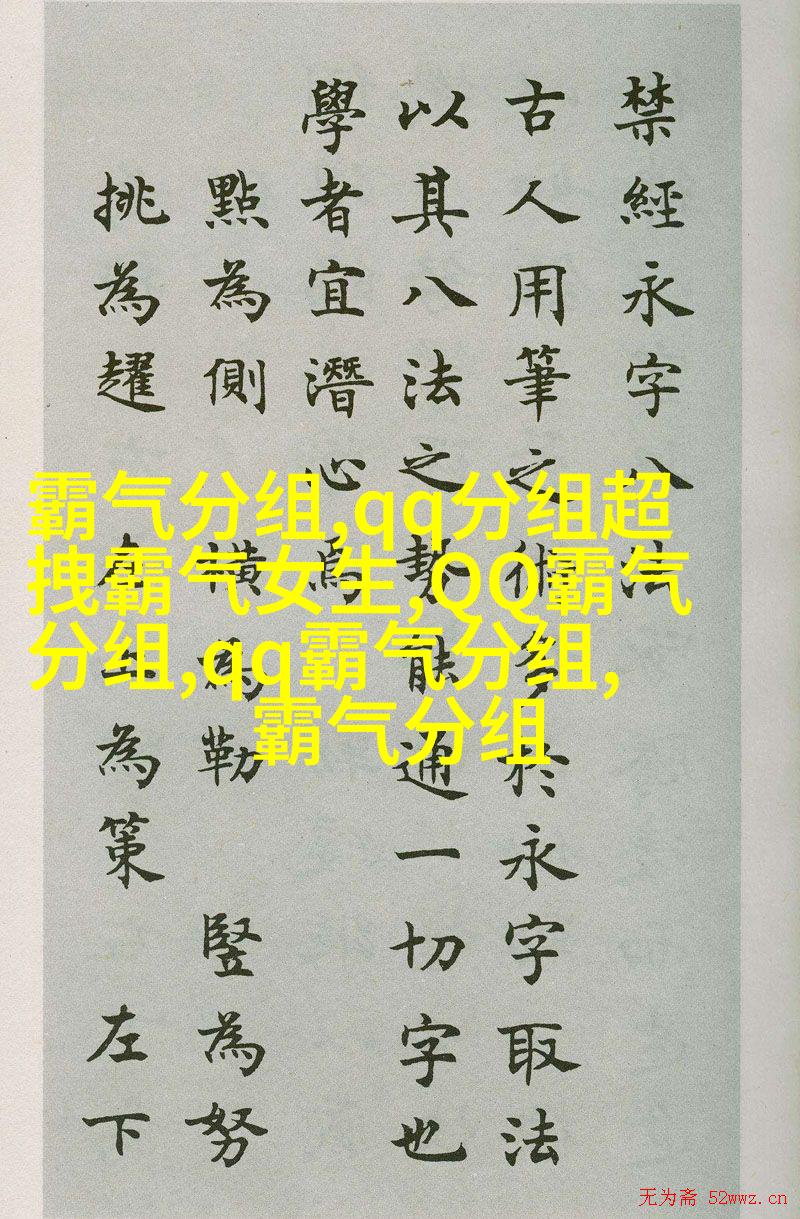 禁經永字八法
古人用筆之多於永字取法
以其八法之勢能通一切字也
學者宜潛心焉
點為側 橫為勒 豎為努
挑為趯 為策 左下
霸气分组,qq分组超
拽霸气女生,QQ霸气
分组,qq霸气分组,
霸气分组
无为斋 52wwz.cn